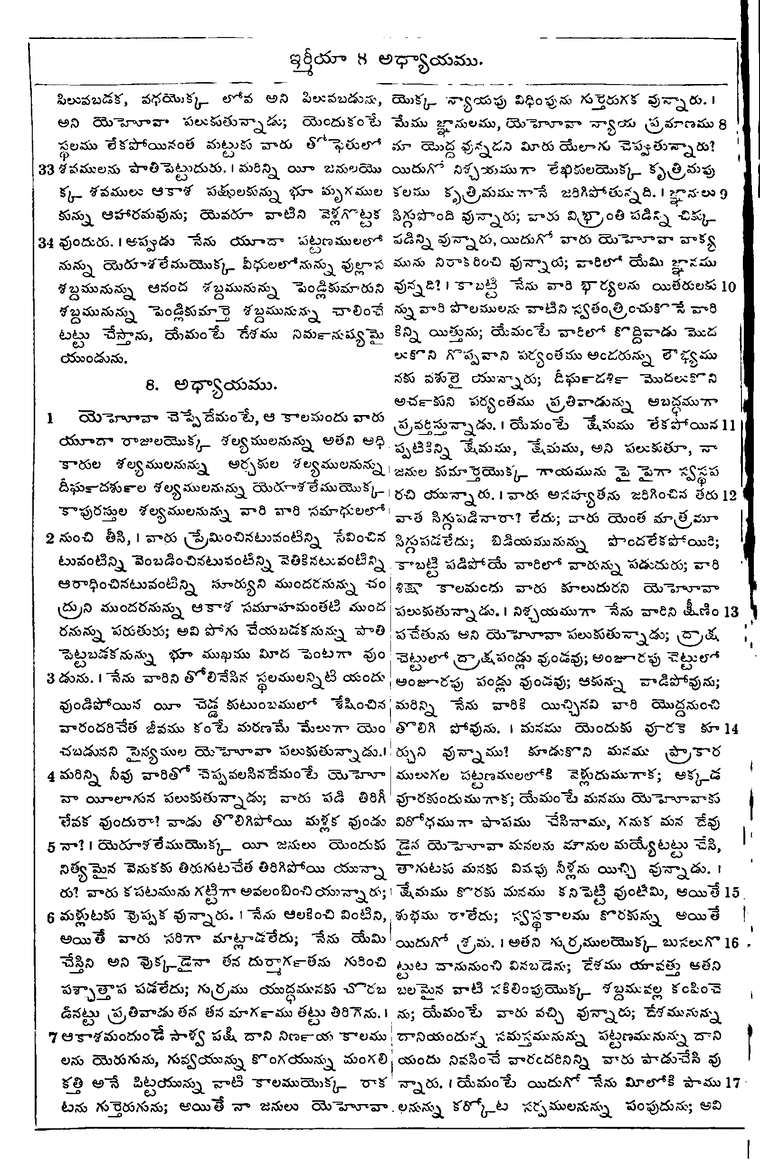 ఇర్మీయా 8 అధ్యాయము.
పిలువబడక, వధయొక్క లోవ అని పిలువబడును,
అని యెహోవా పలుకుతున్నాడు; యెందుకంటే
స్థలము లేకపోయినంత మట్టుకు వారు తోఫెరులో
33 శవములను పాతిపెట్టుదురు. । మరిన్ని యీ జనులయొ
క్క శవములు ఆకాశ పక్షులకున్ను భూ మృగముల
కున్ను ఆహారమవును; యెవరూ వాటిని వెళ్లగొట్టక
34 వుందురు. । అప్పుడు నేను యూదా పట్టణములలో
నున్ను యెరూశలేముయొక్క వీధులలోనున్ను వుల్లాస
శబ్దమునున్ను ఆనంద శబ్దమునున్ను పెండ్లికుమారుని
శబ్దమునున్ను పెండ్లికుమార్తె శబ్దమునున్ను చాలించే
టట్టు చేస్తాను, యేమంటే దేశము నిర్మనుష్యమై
యుండును.
8. అధ్యాయము.
1 యెహోవా చెప్పే దేమంటే, ఆ కాలమందు వారు
యూదా రాజులయొక్క శల్యములనున్ను అతని అధి
కారుల శల్యములనున్ను అర్చకుల శల్యములనున్ను
దీర్ఘదర్శుల శల్యములనున్ను యెరూశలేముయొక్క
కాపురస్తుల శల్యములనున్ను వారి వారి సమాధులలో
2 నుంచి తీసి, । వారు ప్రేమించినటువంటిన్ని సేవించిన
టువంటిన్ని వెంబడించినటువంటిన్ని వెతికినటువంటిన్ని
ఆరాధించినటువంటిన్ని సూర్యుని ముందరనున్ను చం
ద్రుని ముందరనున్ను ఆకాశ సమూహమంతటి ముంద
రనున్ను పరుతురు; అవి పోగు చేయబడకనున్ను పాతి
పెట్టబడకనున్ను భూ ముఖము మీద పెంటగా వుం
3 డును. । నేను వారిని తోలివేసిన స్థలములన్నిటి యందు
వుండిపోయిన యీ చెడ్డ కుటుంబములో శేషించిన
వారందరిచేత జీవము కంటే మరణమే మేలుగా యెం
చబడునని సైన్యముల యెహోవా పలుకుతున్నాడు.।
4 మరిన్ని నీవు వారితో చెప్పవలసినదేమంటే యెహో
వా యీలాగున పలుకుతున్నాడు; వారు పడి తిరిగీ
లేవక వుందురా? వాడు తొలిగిపోయి మళ్లక వుండు
5 నా? । యెరూశలేముయొక్క యీ జనులు యెందుకు
నిత్యమైన వెనుకకు తిరుగుటచేత తిరిగిపోయి యున్నా
రు? వారు కపటమును గట్టిగా అవలంబించి యున్నారు;
6 మళ్లుటకు వొప్పక వున్నారు. । నేను ఆలకించి వింటిని,
అయితే వారు సరిగా మాట్లాడలేదు; నేను యేమి
చేస్తిని అని వొక్కడైనా తన దుర్మార్గతను గురించి
పశ్చాత్తాప పడలేదు; గుర్రము యుద్ధమునకు చొరబ
డినట్టు ప్రతివాడు తన తన మార్గము తట్టు తిరిగెను. ।
7 ఆకాశమందుండే సాళ్వ పక్షి దాని నిర్ణయ కాలము
లను యెరుగును, గువ్వయున్ను కొంగయున్ను మంగలి
కత్తి అనే పిట్టయున్ను వాటి కాలముయొక్క రాక
టను గుర్తెరుగును; అయితే నా జనులు యెహోవా
యొక్క న్యాయపు విధింపును గుర్తెరుగక వున్నారు. ।
మేము జ్ఞానులము, యెహోవా న్యాయ ప్రమాణము 8
మా యొద్ద వున్నదని మీరు యేలాగు చెప్పుతున్నారు?
యిదుగో నిశ్చయముగా లేఖకులయొక్క కృత్రిమపు
కలము కృత్రిమముగానే జరిగిపోతున్నది. । జ్ఞానులు 9
సిగ్గుపొంది వున్నారు; వారు విభ్రాంతి పడిన్ని చిక్కు
పడిన్ని వున్నారు, యిదుగో వారు యెహోవా వాక్య
మును నిరాకరించి వున్నారు; వారిలో యేమి జ్ఞానము
వున్నది? । కాబట్టి నేను వారి భార్యలను యితరులకు 10
న్ను వారి పొలములను వాటిని స్వతంత్రించుకొనే వారి
కిన్ని యిత్తును; యేమంటే వారిలో కొద్దివాడు మొద
లుకొని గొప్పవాని పర్యంతము అందరున్ను లోభ్యము
నకు వశులై యున్నారు; దీర్ఘదర్శి మొదలుకొని
అర్చకుని పర్యంతము ప్రతివాడున్ను అబద్ధముగా
ప్రవర్తిస్తున్నాడు. । యేమంటే క్షేమము లేకపోయిన 11
ప్పటికిన్ని క్షేమము, క్షేమము, అని పలుకుతూ, నా
జనుల కుమార్తెయొక్క గాయమును పై పైగా స్వస్థప
రచి యున్నారు. । వారు అసహ్యతను జరిగించిన తరు 12
వాత సిగ్గుపడినారా? లేదు; వారు యెంత మాత్రమూ
సిగ్గుపడలేదు; బిడియమునున్ను పొందలేకపోయిరి;
కాబట్టి పడిపోయే వారిలో వారున్ను పడుదురు; వారి
శిక్షా కాలమందు వారు కూలుదురని యెహోవా
పలుకుతున్నాడు. । నిశ్చయముగా నేను వారిని క్షీణిం 13
పచేతును అని యెహోవా పలుకుతున్నాడు; ద్రాక్ష
చెట్టులో ద్రాక్షపండ్లు వుండవు; అంజూరపు చెట్టులో
అంజూరపు పండ్లు వుండవు; ఆకున్ను వాడిపోవును;
మరిన్ని నేను వారికి యిచ్చినవి వారి యొద్దనుంచి
తొలిగి పోవును. । మనము యెందుకు వూరకె కూ 14
ర్చుని వున్నాము? కూడుకొని మనము ప్రాకార
ములుగల పట్టణములలోకి వెళ్లుదుముగాక; అక్కడ
వూరకుందుముగాక; యేమంటే మనము యెహోవాకు
విరోధముగా పాపము చేసినాము, గనుక మన దేవు
డైన యెహోవా మనలను మౌనుల మయ్యేటట్టు చేసి,
తాగుటకు మనకు విషపు నీళ్లను యిచ్చి వున్నాడు. ।
క్షేమము కొరకు మనము కనిపెట్టి వుంటిమి, అయితే 15
శుభము రాలేదు; స్వస్థకాలము కొరకున్ను అయితే
యిదుగో శ్రమ. । అతని గుర్రములయొక్క బుసలుగొ 16
ట్టుట దానునుంచి వినబడెను; దేశము యావత్తు అతని
బలమైన వాటి సకిలింపుయొక్క శబ్దమువల్ల కంపించె
ను; యేమంటే వారు వచ్చి వున్నారు; దేశమునున్ను
దానియందున్న సమస్తమునున్ను పట్టణమునున్ను దాని
యందు నివసించే వారందరినిన్ని వారు పాడుచేసి వు
న్నారు. । యేమంటే యిదుగో నేను మీలోకి పాము 17
లనున్ను కర్కోట సర్పములనున్ను పంపుదును; అవి